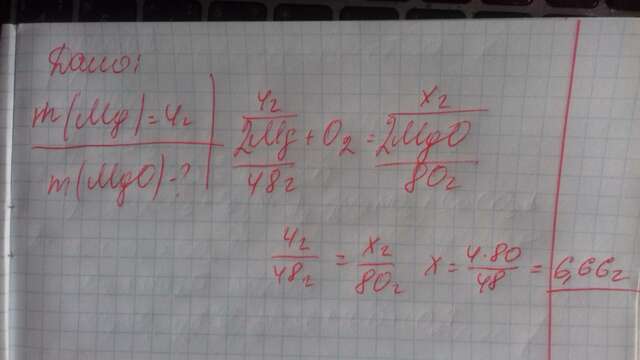 Дано:
m(Mg)=4г
m(MgO)-?
4г xг
2Mg + O2 = 2MgO
48г 80г
4г/48г = xг/80г x = 4·80/48 = 6,66г